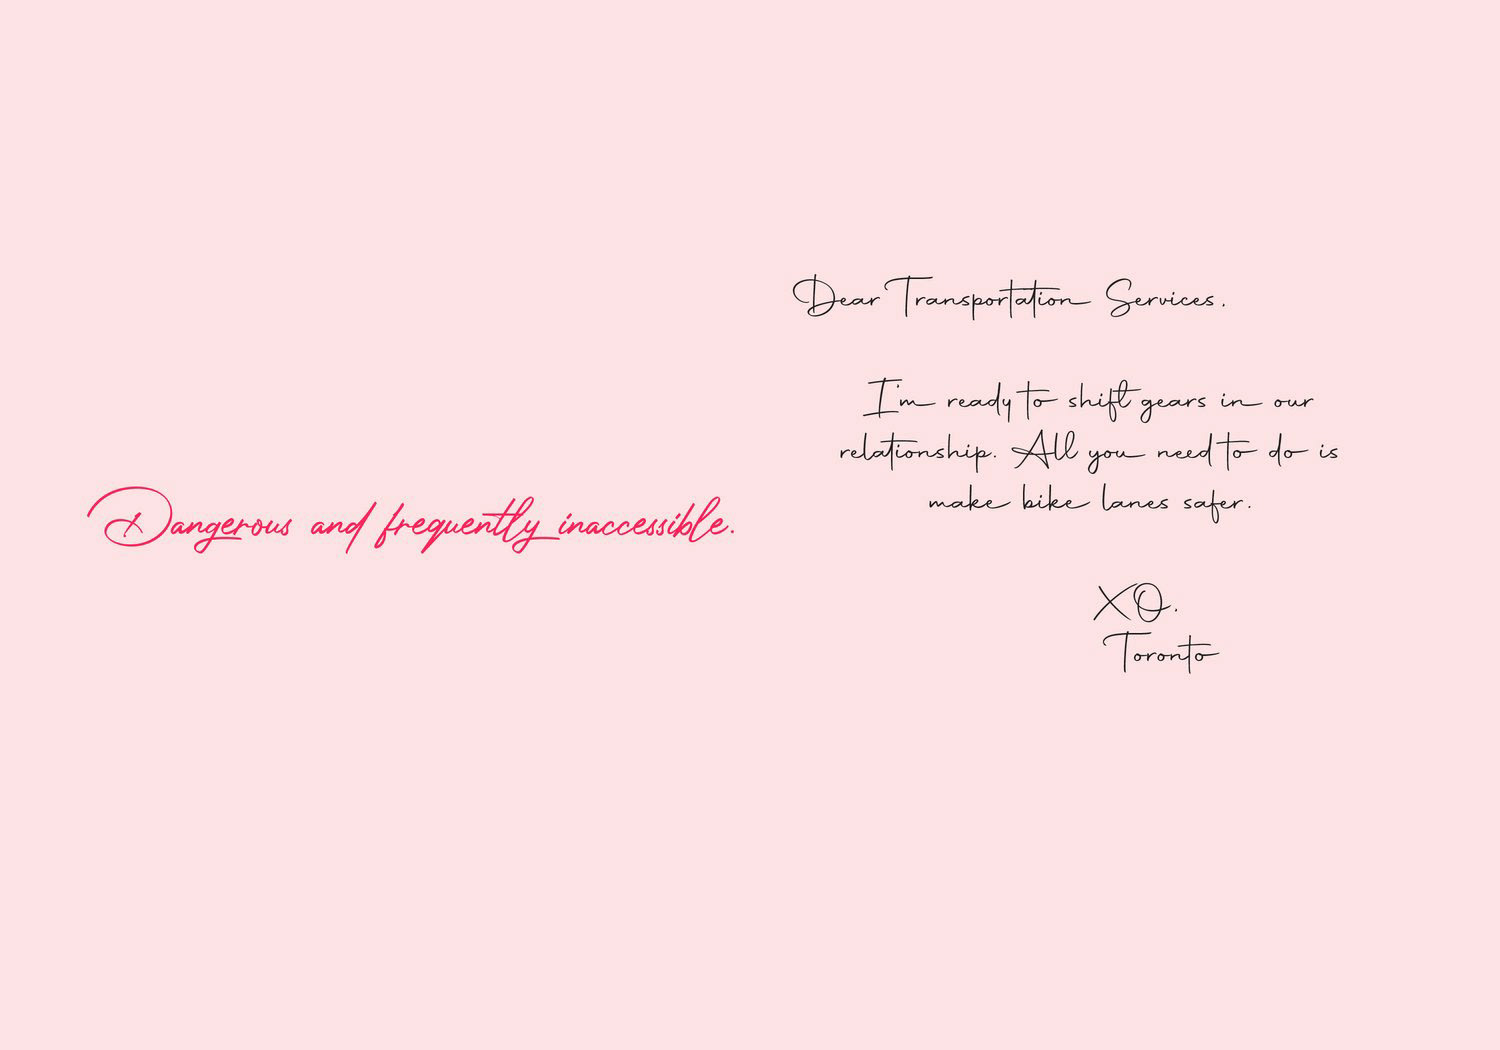 Dangerous and frequently inaccessible.
Dear Transportation Services,
I'm ready to shift gears in our
relationship. All you need to do is
make bike lanes safer.
XO,
Toronto